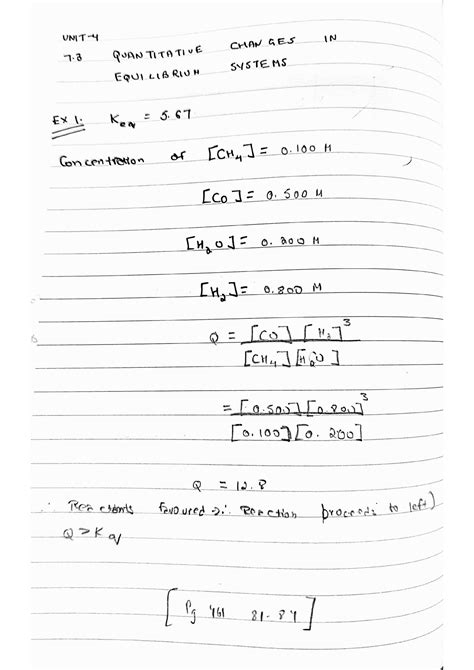 UNIT-4
7.3 QUANTITATIVE CHANGES IN
EQUILIBRIUM SYSTEMS
Ex 1. Keq = 5.67
Concentration of [CH4] = 0.100 M
[CO] = 0.500 M
[H2O] = 0.200 M
[H2] = 0.800 M
Q = [CO] [H2]^3
[CH4][H2O]
= [0.500][0.800]^3
[0.100][0.200]
Q = 12.8
∴ Reactants favoured ∴ Reaction proceeds to left)
Q > Keq
[Pg 461 81-84]